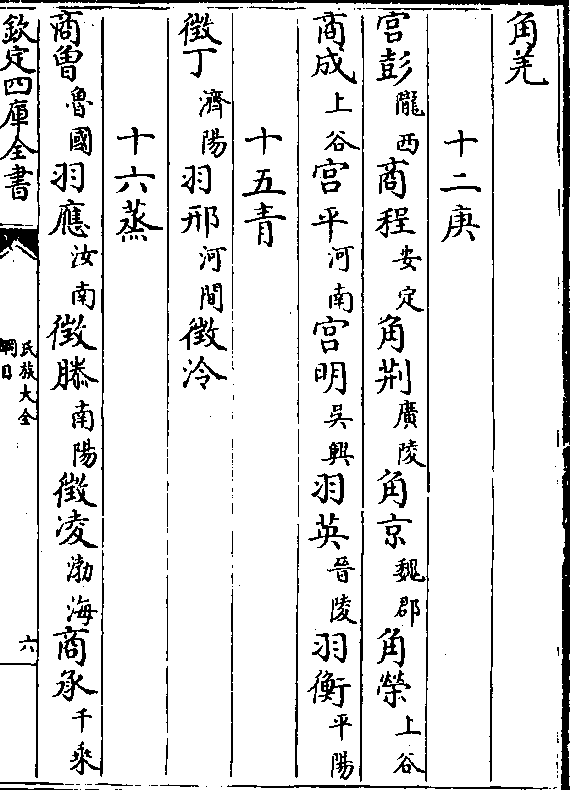 角羌
十二庚
宫彭隴西商程安定角荆廣陵角京魏郡角榮上谷
商成上谷宫平河南宫明吳興羽英晉陵羽衡平陽
十五青
徵丁濟陽羽邢河間徵泠
十六蒸
商曾魯國羽應汝南徵滕南陽徵凌渤海商承千乘
欽定四庫全書
氏族大全
綱目
六